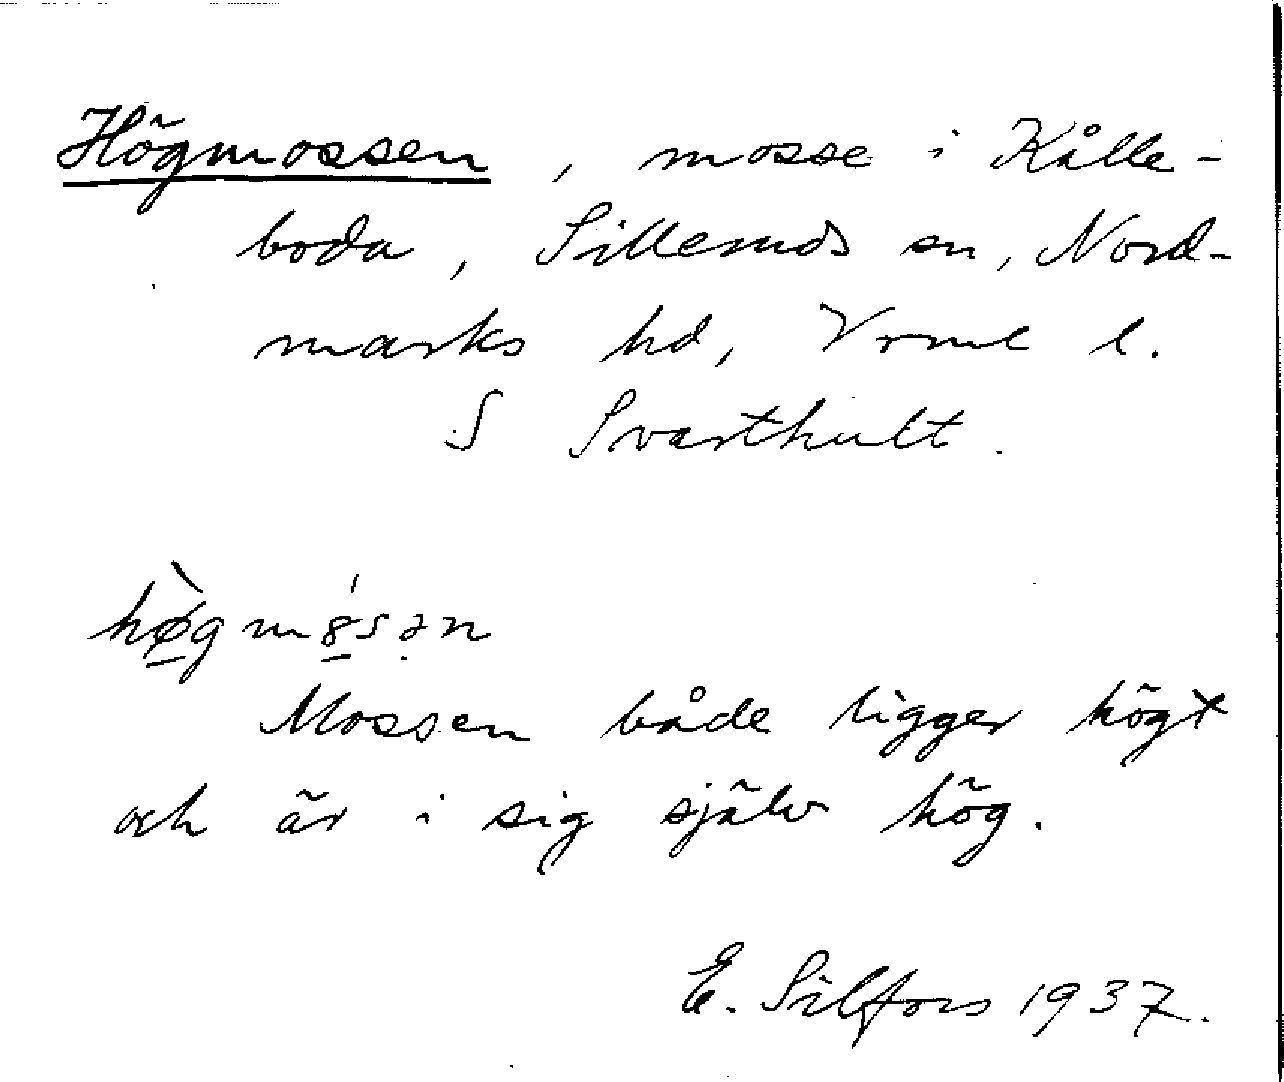 Högmossen, mosse i Kålle-
boda, Silleruds sn, Nord-
marks hd, Vrml l.
S Svarthult.
hø̀gmȣ́sən
Mossen både ligger högt
och är i sig själv hög.
E. Silfors 1937.